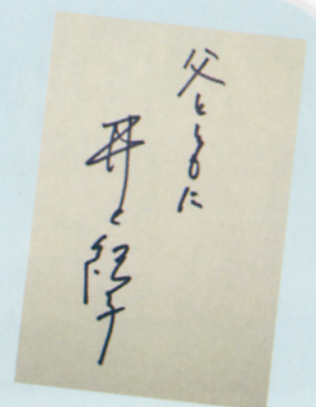 父とともに
井上紀子